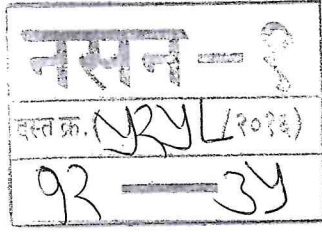 नसन - १
दस्त क्र. (५२५८/२०१६)
१२ — ३५